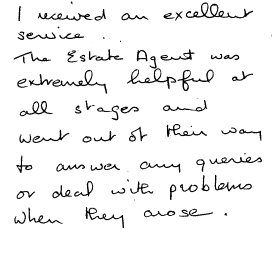 I received an excellent
service ..
The Estate Agent was
extremely helpful at
all stages and
went out of their way
to answer any queries
or deal with problems
when they arose.